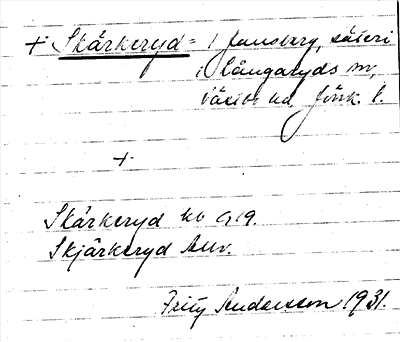 + Skärkeryd = 1 Jansberg, säteri
i Långaryds sn,
Västbo hd, Jönk. l.
+
Skärkeryd kb 919.
Skjärkeryd Auv.
Fritz Andersson 1931.